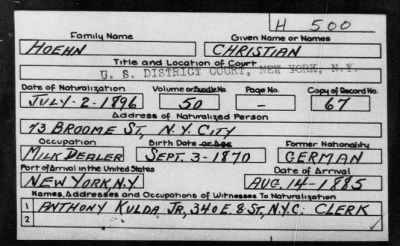 H 500
Family Name Given Name or Names
HOEHN CHRISTIAN
Title and Location of Court
U. S. DISTRICT COURT, NEW YORK, N.Y.
Date of Naturalization Volume or Bundle No. Page No. Copy of Record No.
JULY-2-1896 50 - 67
Address of Naturalized Person
73 BROOME ST, N.Y. CITY
Occupation Birth Date or Age Former Nationality
MILK DEALER SEPT. 3-1870 GERMAN
Port of Arrival in the United States Date of Arrival
NEW YORK, N.Y AUG. 14-1885
Names, Addresses and Occupations of Witnesses To Naturalization
1 ANTHONY KULDA JR, 340 E. 8-ST, N.Y.C: CLERK
2